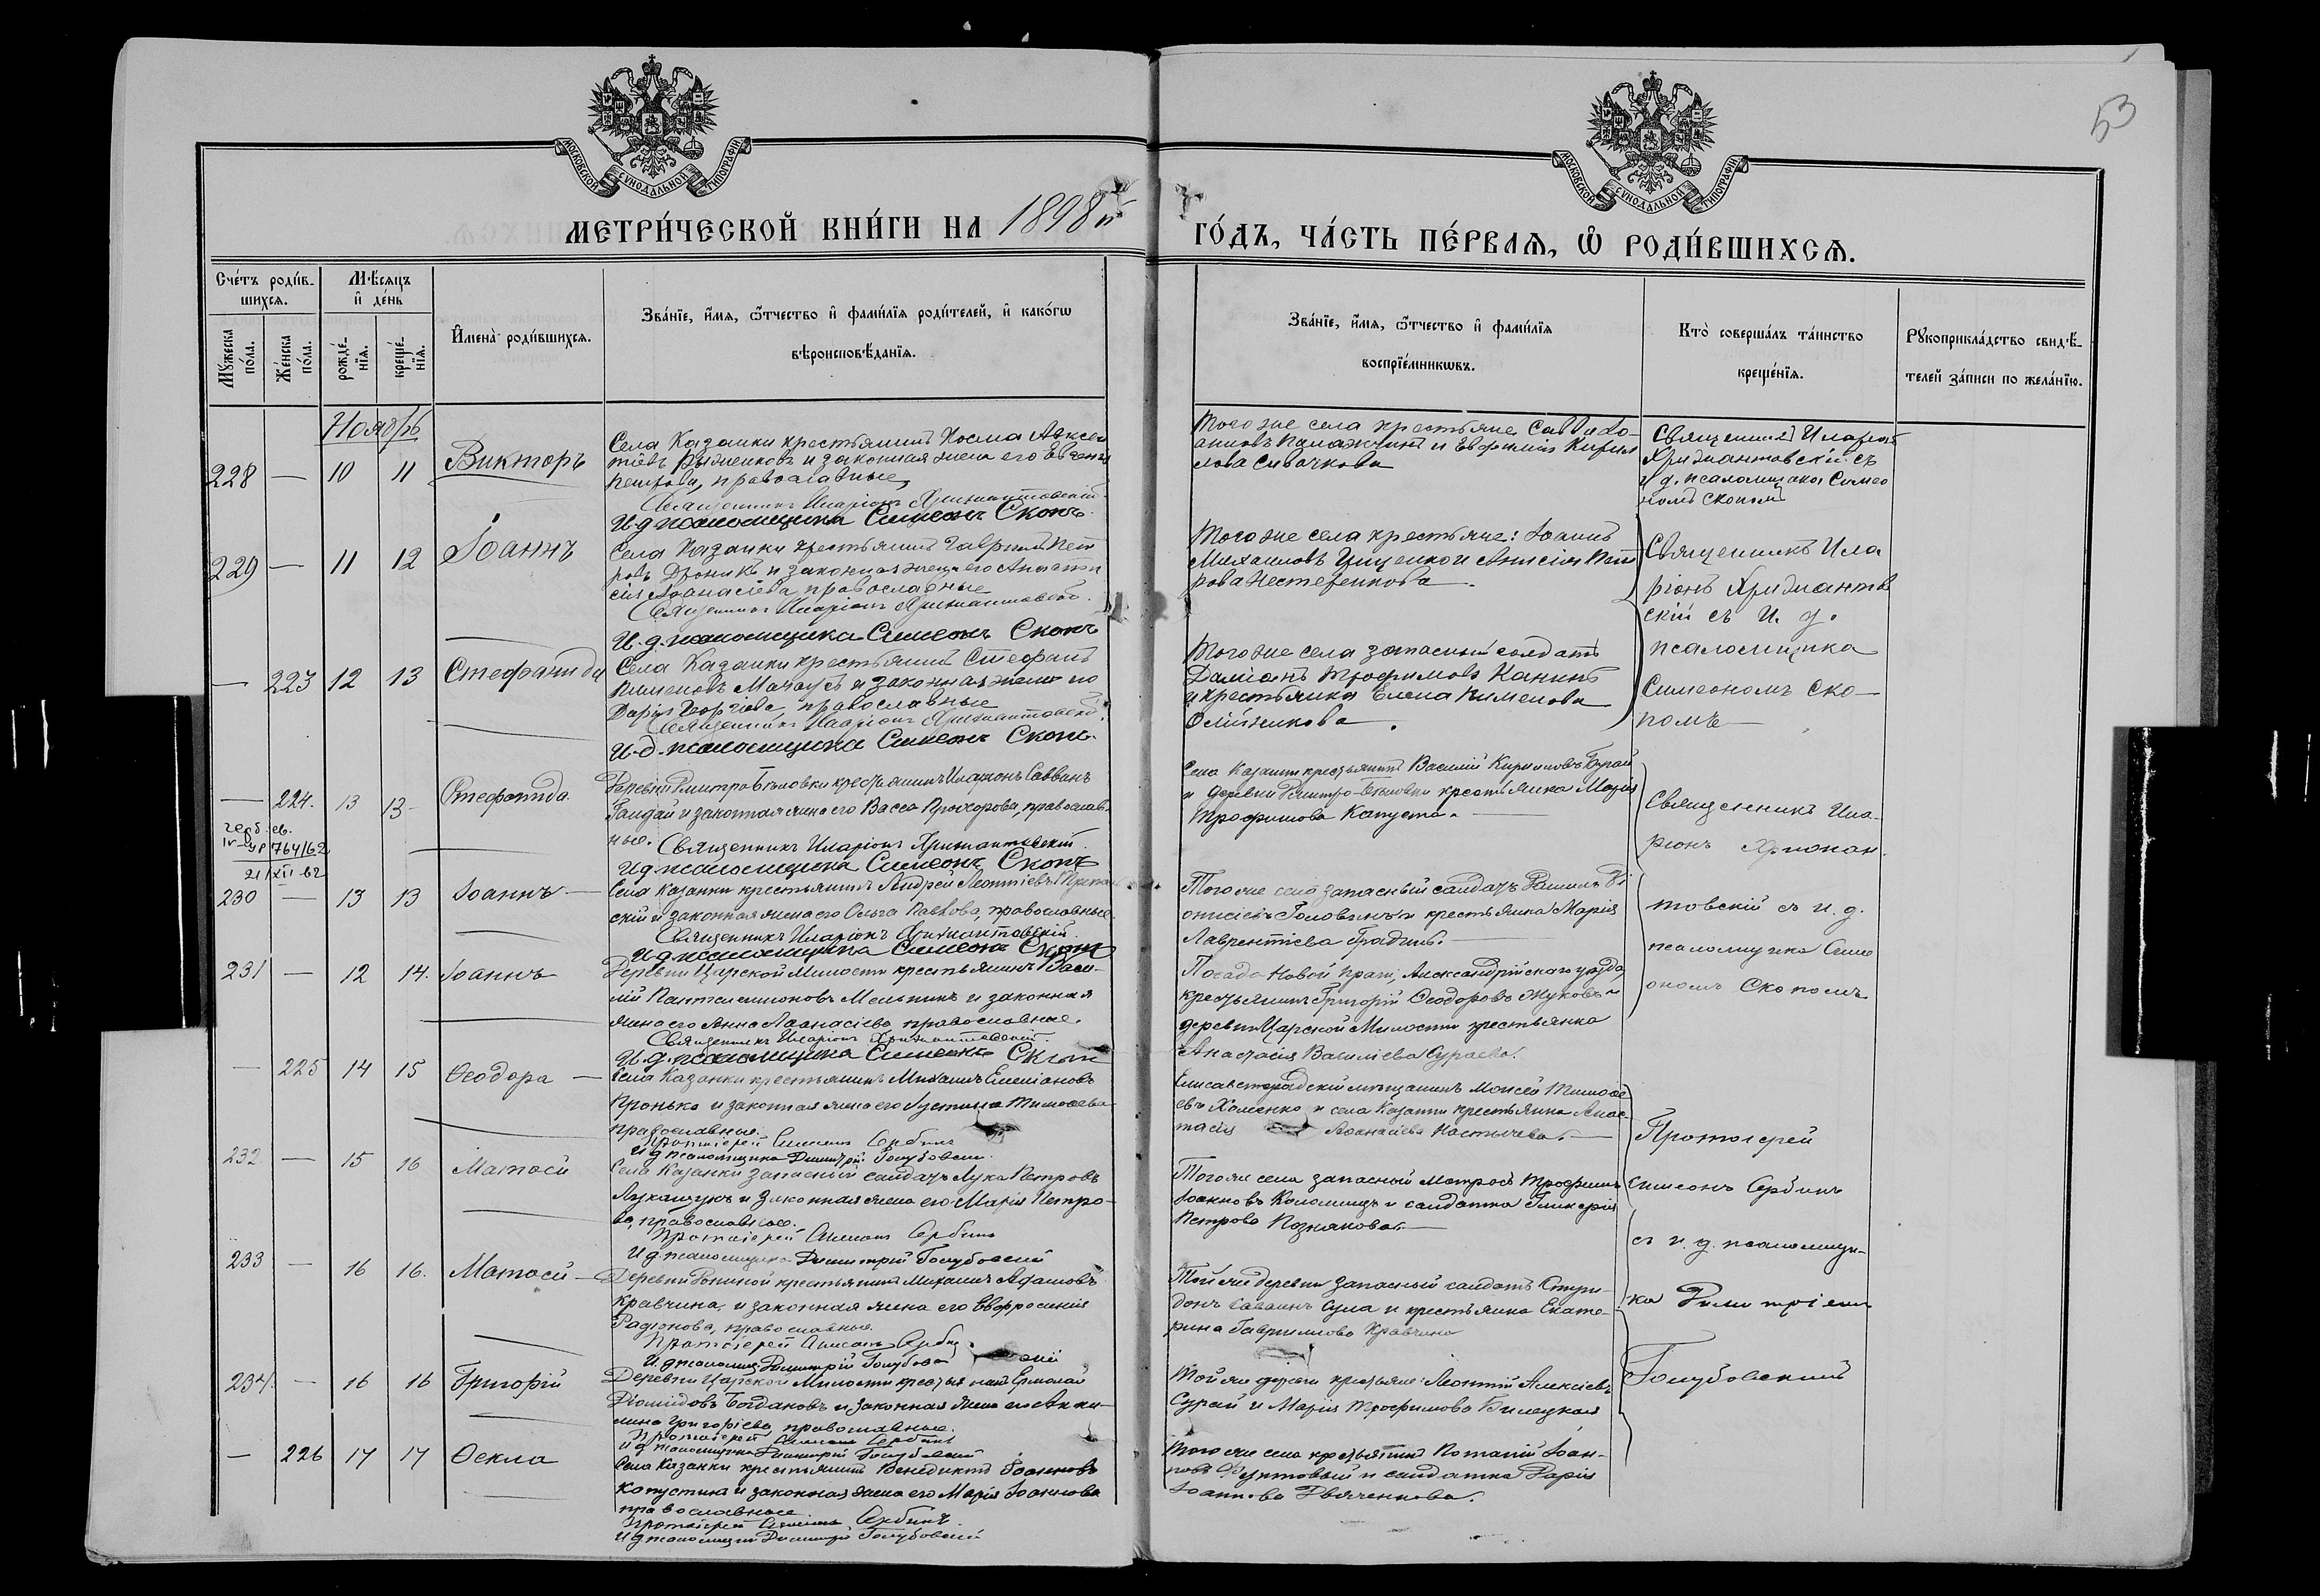 53
МОСКОВСКОЙ СѴНОДАЛЬНОЙ ТИПОГРАФІИ
МОСКОВСКОЙ СѴНОДАЛЬНОЙ ТИПОГРАФІИ
МЕТРИ́ЧЕСКОЙ КНИ́ГИ НА 1898й
ГО́ДЪ, ЧА́СТЬ ПЕ́РВАѦ, Ѽ РОДИ́ВШИХСѦ.
Счéтъ роди́в-
шихсѧ.
Мꙋжеска
по́ла.
Же́нска
по́ла.
Мѣ́сѧцъ
и҆ де́нь
рожде́-
нїѧ.
креще́-
нїѧ.
И҆мена̀ роди́вшихсѧ.
Зва́нїе, и҆́мѧ, ѻ҆́тчество и҆ фами́лїѧ роди́телей, и҆ како́гѡ
вѣроисповѣ́данїѧ.
Зва́нїе, и҆́мѧ, ѻ҆́тчество и҆ фами́лїѧ
воспрїе́мникѡвъ.
Кто̀ соверша́лъ та́инство
креще́нїѧ.
Рꙋкоприкла́дство свидѣ́-
телей за́писи по жела́нїю.
Ноябрь
228 — 10 11 Викторъ
Села Казанки крестьянинъ Косма Авксен
тіевъ и законная жена его Евгенія
Петрова, православные
Священникъ Иларіонъ Хрисантовскій
И. д. псаломщика Симеонъ Скопъ
Того же села крестьяне Савва Іо-
анновъ и Евфимія Кирил
лова Сивачкова
Священникъ Иларіонъ
Хрисантовскій съ
И д. псаломщика Симео
номъ Скопомъ
229 — 11 12 Іоаннъ
Села Казанки крестьянинъ Гавріилъ Пет
ровъ и законная жена его Анаста
сія Аѳанасіева, православные
Священникъ Иларіонъ Хрисантовскій
И. д. псаломщика Симеонъ Скопъ
Того же села крестьяне: Іоаннъ
Михаиловъ Грищенко и Анисія Пет
рова Нестеренкова
Священникъ Ила
ріонъ Хрисантов
скій съ И. д.
псаломщика
Симеономъ Ско-
помъ
— 223 12 13 Стефанида
Села Казанки крестьянинъ Стефанъ
Пименовъ и законная жена его
Дарія Георгіева православные
Священникъ Иларіонъ Хрисантовскій
И. д. псаломщика Симеонъ Скопъ
Того же села запасный солдатъ
Даміанъ Трофимовъ Канинъ
и крестьянка Елена Пименова
Олійникова
— 224. 13 13 Стефанида
Деревни Дмитро-Бѣловки крестьянинъ Иларіонъ Саввинъ
Гайдай и законная жена его Васса Прохорова, православ-
ные. Священникъ Иларіонъ Хрисантовскій
И д. псаломщика Симеонъ Скопъ
Села Казанки крестьянинъ Василій Кирилловъ Бурай
и деревни Дмитро-Бѣловки крестьянка Марія
Трофимова Капуста.
Священникъ Ила-
ріонъ Хрисан.
764/62
21/XII 62
230 — 13 13 Іоаннъ
Села Казанки крестьянинъ Андрей Леонтіевъ
скій и законная жена его Ольга Павлова, православные.
Священникъ Иларіонъ Хрисантовскій
И д. псаломщика Симеонъ Скопъ
Того же села запасный солдатъ Даніилъ Ді
онисіевъ Головинъ и крестьянка Марія
Лаврентіева
товскій съ и. д.
псаломщика Симе
ономъ Скопомъ
231 — 12 14. Іоаннъ
Деревни Царской Милости крестьянинъ Васи-
лій Пантелеимоновъ Мельникъ и законная
жена его Анна Аѳанасіева православные.
Священникъ Иларіонъ Хрисантовскій
И. д. псаломщика Симеонъ Скопъ
Посада Новой Праги, Александрійскаго уѣзда
крестьянинъ Григорій Ѳеодоровъ Жуковъ и
деревни Царской Милости крестьянка
Анастасія Василіева Сураева.
— 225 14 15 Ѳеодора
Села Казанки крестьянинъ Михаилъ Емеліановъ
Пронько и законная жена его Іустина Тимоѳеева
православные.
Протоіерей Симеонъ Сербинъ
И д псаломщика Димитрій Голубовскій
Елисаветградскій мѣщанинъ Моисей Тимоѳе
евъ Хоменко и села Казанки крестьянка Анас-
тасія Аѳанасіева Костычева.
Протоіерей
232 — 15 16 Матѳей
Села Казанки запасный солдатъ Лука Петровъ
Лукащукъ и законная жена его Марія Петро-
ва, православные.
Протоіерей Симеонъ Сербинъ
И д. псаломщика Димитрій Голубовскій
Того же села запасный матросъ Трофимъ
Іоанновъ Коломіецъ и солдатка Гликерія
Петрова Познякова.
Симеонъ Сербинъ
съ и. д. псаломщи-
233 — 16 16. Матѳей
Деревни крестьянинъ Михаилъ Адамовъ
Кравчина, и законная жена его Евфросинія
Радіонова, православные.
Протоіерей Симеонъ Сербинъ
И д псаломщ Димитрій Голубовскій
Той же деревни запасный солдатъ Спири-
донъ Саввинъ Сула и крестьянка Екате-
рина Гавриилова Кравчина
ка Димитріемъ
234. — 16 16 Григорій
Деревни Царской Милости крестьянинъ Ермолай
Діомидовъ Богдановъ и законная жена его Аки-
лина Григоріева православные.
Протоіерей Симеонъ Сербинъ
И д псаломщика Димитрій Голубовскій
Той же деревни крестьяне: Леонтій Алексіевъ
Сурай и Марія Трофимова Билецкая
Голубовскимъ
— 226 17 17 Ѳекла
Села Казанки крестьянинъ Венедиктъ Іоанновъ
Капустинъ и законная жена его Марія Іоаннова
православные
Протоіерей Симеонъ Сербинъ
И д псаломщик Димитрій Голубовскій
Того же села крестьянинъ Потапій Іоан-
новъ Фунтовый и солдатка Дарія
Іоаннова Дьяченкова.